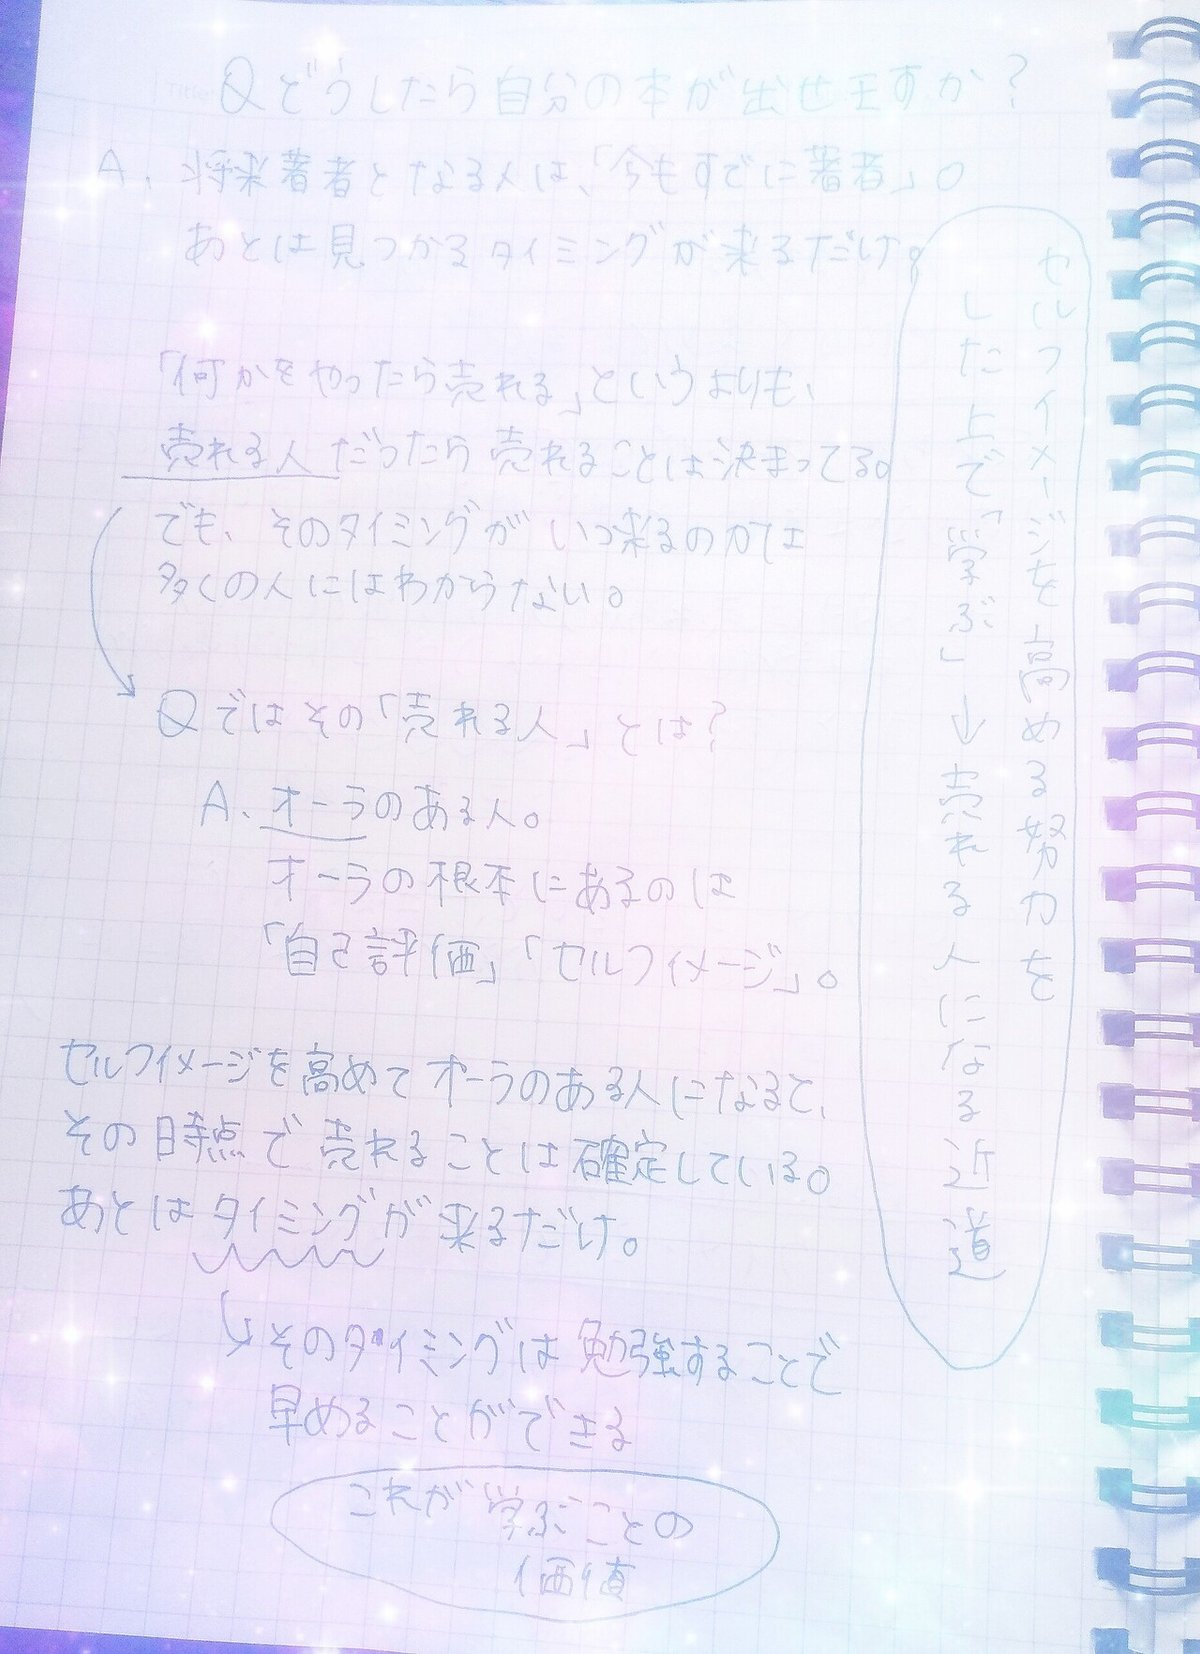 Qどうしたら自分の本が出せますか?
A、将来著者となる人は、「今もすでに著者」。
あとは見つかるタイミングが来るだけ。
「何かをやったら売れる」というよりも、
売れる人だったら売れることは決まってる。
でも、そのタイミングがいつ来るのかは
多くの人にはわからない。
Qではその「売れる人」とは?
A、オーラのある人。
オーラの根本にあるのは
「自己評価」「セルフイメージ」。
セルフイメージを高めてオーラのある人になると、
その時点で売れることは確定している。
あとはタイミングが来るだけ。
そのタイミングは勉強することで
早めることができる
これが学ぶことの
価値
セルフイメージを高める努力を
した上で「学ぶ」→売れる人になる近道